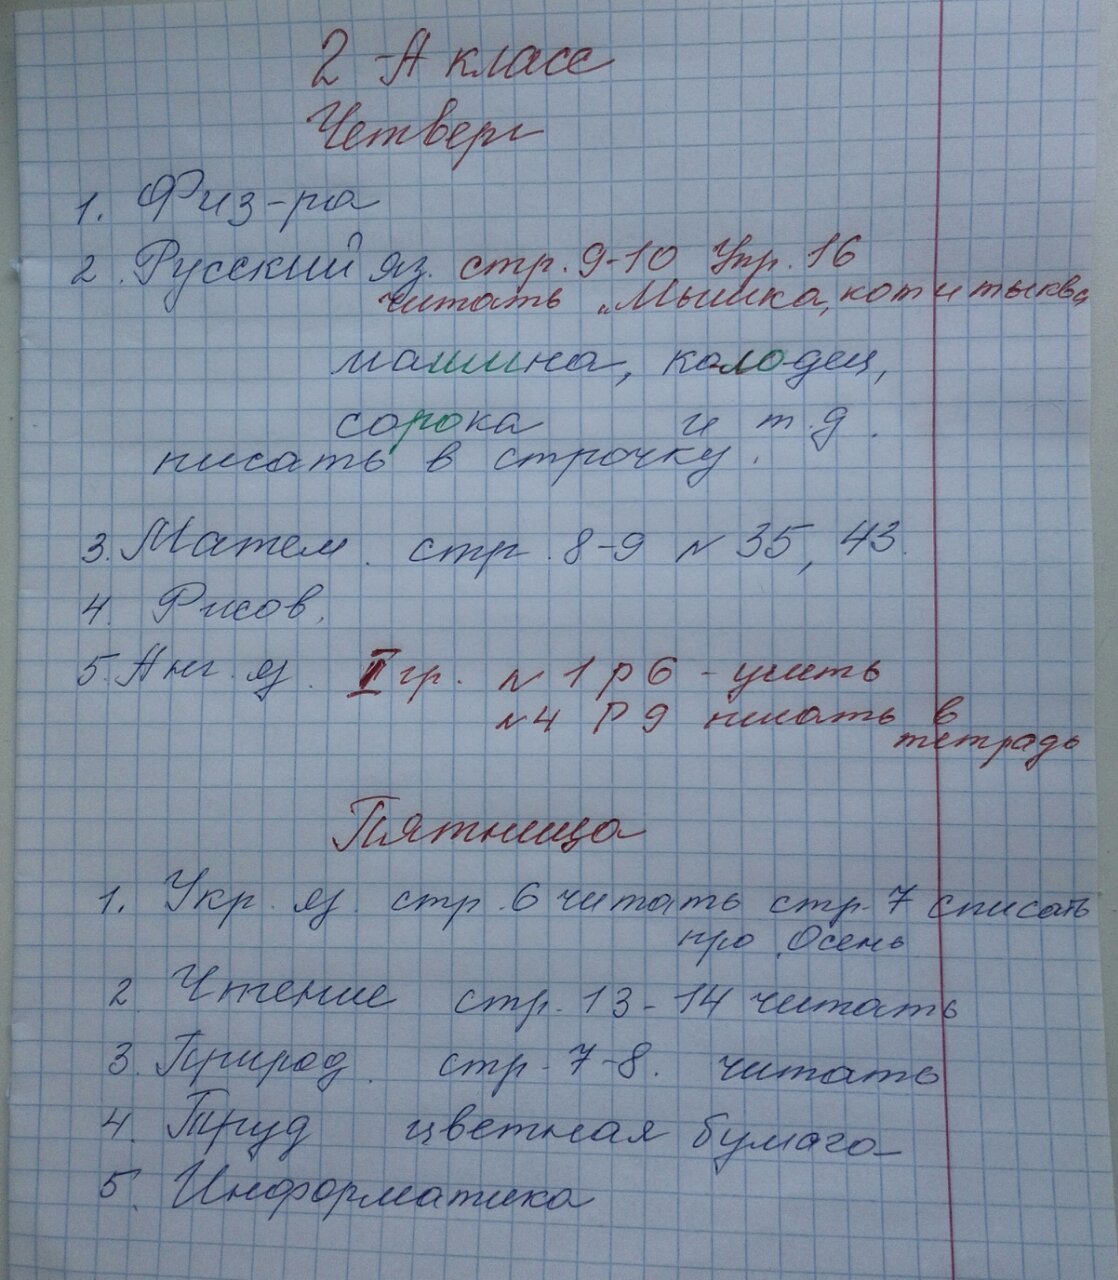 2-А класс
Четверг
1. Физ-ра
2. Русский яз. стр. 9-10 Упр. 16
читать „Мышка, кот и тыква
машина, колодец,
сорока и т.д.
писать в строчку.
3. Матем. стр. 8-9 № 35, 43
4. Рисов.
5. Анг. яз. I гр. № 1 р 6 - учить
№4 Р 9 писать в
тетрадь
Пятница
1. Укр. яз. стр. 6 читать стр. 7 списать
про Осень
2 Чтение стр. 13-14 читать
3. Природ. стр. 7-8. читать
4. Труд цветная бумага
5. Информатика